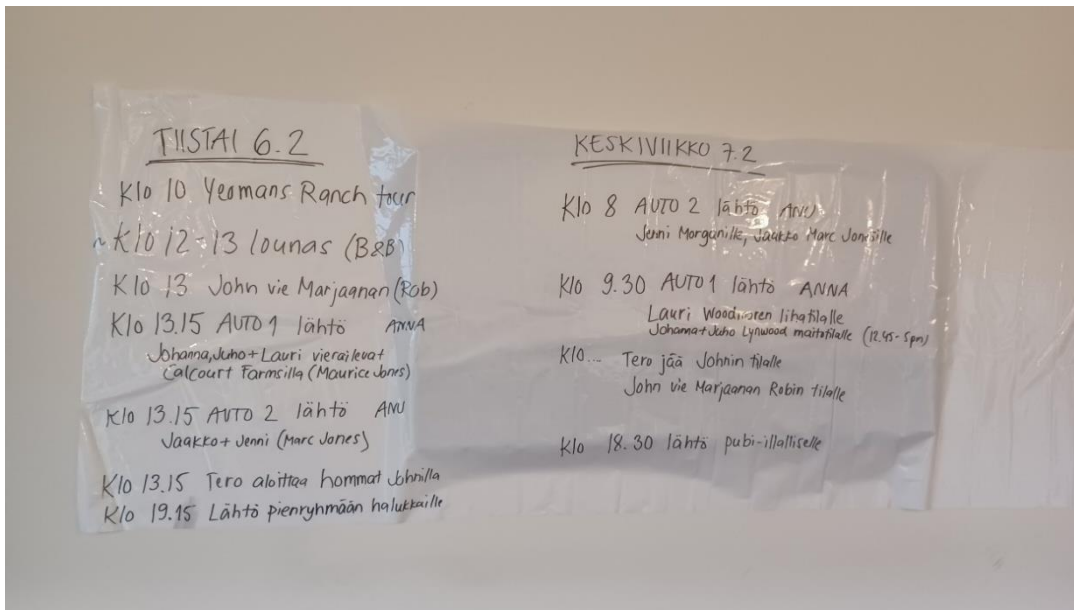 TIISTAI 6.2
Klo 10 Yeomans Ranch tour
~ Klo 12-13 lounas (B&B)
Klo 13 John vie Marjaanan (Rob)
Klo 13.15 AUTO 1 lähtö ANNA
Johanna, Juho + Lauri vierailevat
Calcourt Farmsilla (Maurice Jones)
Klo 13.15 AUTO 2 lähtö ANU
Jaakko + Jenni (Marc Jones)
Klo 13.15 Tero aloittaa hommat Johnilla
Klo 19.15 Lähtö pienryhmään halukkaille
KESKIVIIKKO 7.2
Klo 8 AUTO 2 lähtö ANU
Jenni Morganille, Jaakko Marc Jonesille
Klo 9.30 AUTO 1 lähtö ANNA
Lauri lihatilalle
Johanna + Juho Lynwood maitotilalle (12.45 - 5pm)
Klo... Tero jää Johnin tilalle
John vie Marjaanan Robin tilalle
Klo 18.30 lähtö pubi-illalliselle